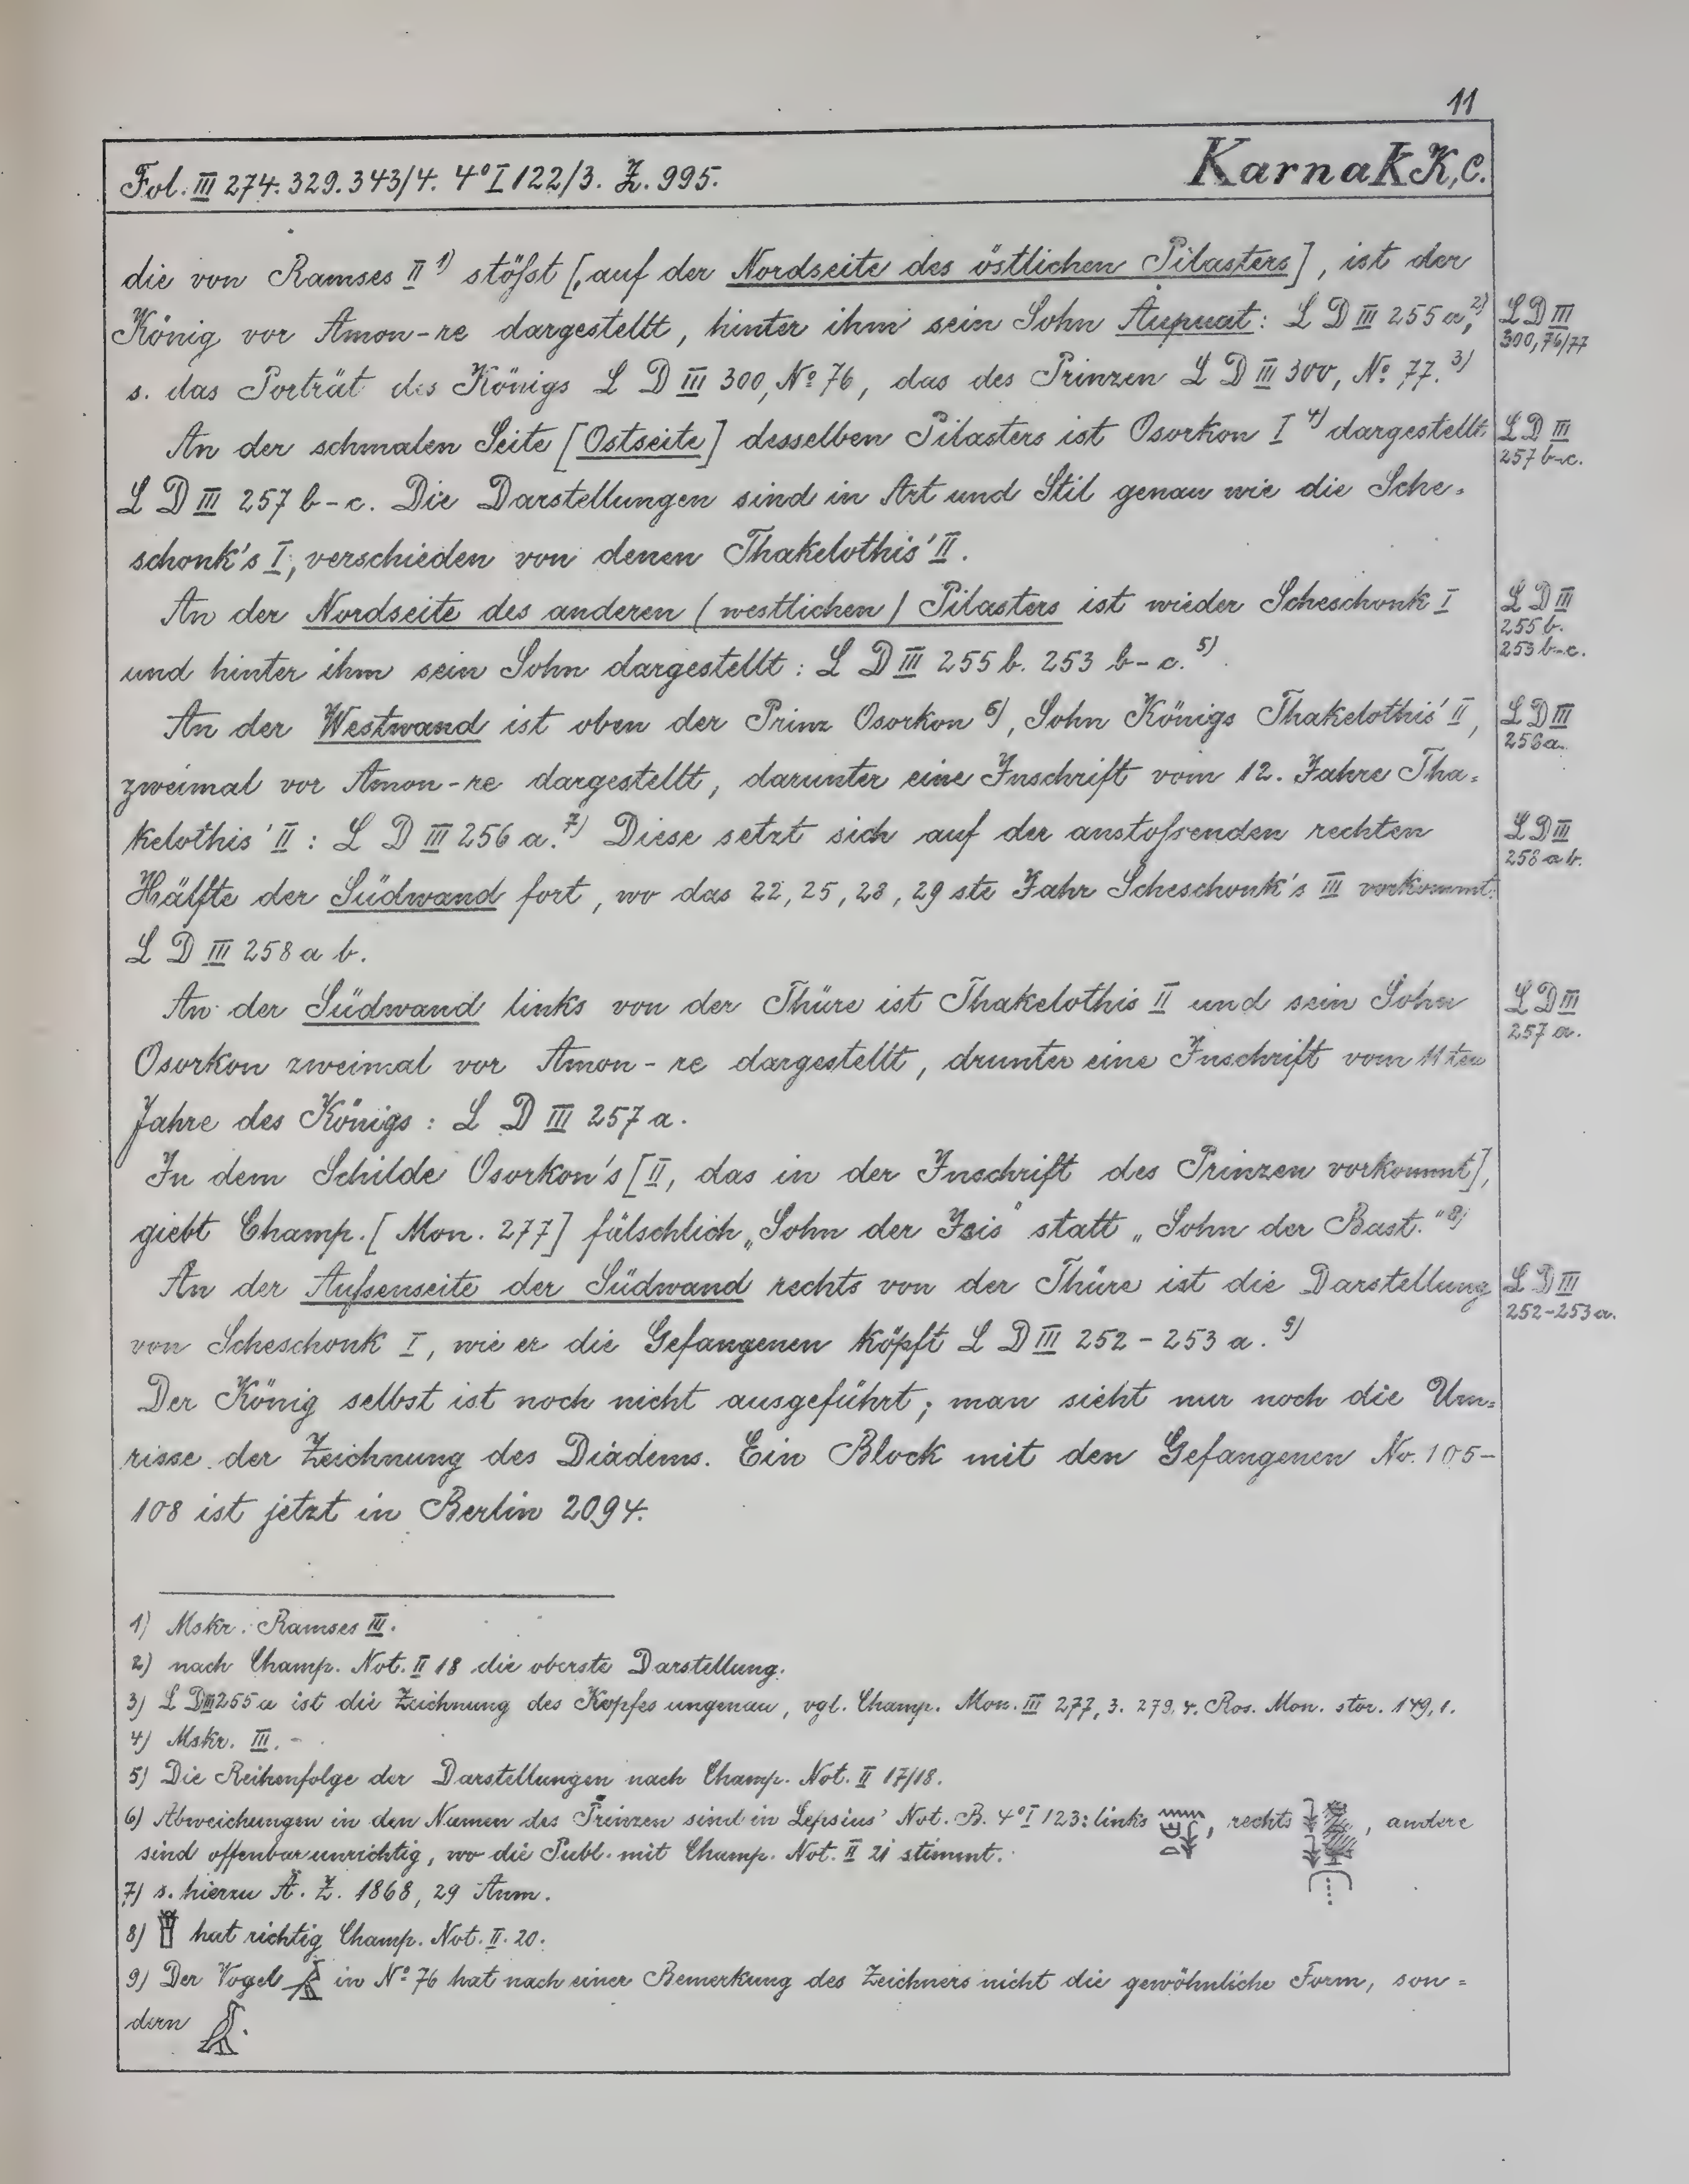 11
Fol. III 274. 329. 343/4. 4° I 122/3. Z. 995.
Karnak K, C.
die von Ramses II ¹⁾ stößt [, auf der Nordseite des östlichen Pilasters], ist der
König vor Amon-re dargestellt, hinter ihm sein Sohn Aupuat: L D III 255 a, ²⁾
L D III
300, 76/77
s. das Porträt des Königs L D III 300, N° 76, das des Prinzen L D III 300, N° 77. ³⁾
An der schmalen Seite [Ostseite] desselben Pilasters ist Osorkon I ⁴⁾ dargestellt
L D III
257 b-c.
L D III 257 b-c. Die Darstellungen sind in Art und Stil genau wie die Sche-
schonk's I, verschieden von denen Thakelothis' II.
An der Nordseite des anderen (westlichen) Pilasters ist wieder Scheschonk I
L D III
255 b.
253 b-c.
und hinter ihm sein Sohn dargestellt: L D III 255 b. 253 b-c. ⁵⁾
An der Westwand ist oben der Prinz Osorkon ⁶⁾, Sohn Königs Thakelothis' II,
L D III
256 a.
zweimal vor Amon-re dargestellt, darunter eine Inschrift vom 12. Jahre Tha-
kelothis' II: L D III 256 a. ⁷⁾ Diese setzt sich auf der anstoßenden rechten
L D III
258 a b.
Hälfte der Südwand fort, wo das 22, 25, 28, 29 ste Jahr Scheschonk's III vorkommt.
L D III 258 a b.
An der Südwand links von der Thüre ist Thakelothis II und sein Sohn
L D III
257 a.
Osorkon zweimal vor Amon-re dargestellt, drunter eine Inschrift vom 11 ten
Jahre des Königs: L D III 257 a.
In dem Schilde Osorkon's [II, das in der Inschrift des Prinzen vorkommt],
giebt Champ. [Mon. 277] fälschlich „Sohn der Isis" statt „Sohn der Bast." ⁸⁾
An der Außenseite der Südwand rechts von der Thüre ist die Darstellung
L D III
252-253 a.
von Scheschonk I, wie er die Gefangenen köpft L D III 252-253 a. ⁹⁾
Der König selbst ist noch nicht ausgeführt; man sieht nur noch die Um-
risse der Zeichnung des Diadems. Ein Block mit den Gefangenen No. 105-
108 ist jetzt in Berlin 2094.
1) Mskr. Ramses III.
2) nach Champ. Not. II 18 die oberste Darstellung.
3) L D III 255 a ist die Zeichnung des Kopfes ungenau, vgl. Champ. Mon. III 277, 3. 279, 4. Ros. Mon. stor. 149, 1.
4) Mskr. III.
5) Die Reihenfolge der Darstellungen nach Champ. Not. II 17/18.
6) Abweichungen in den Namen des Prinzen sind in Lepsius' Not. B. 4° I 123: links , rechts , andere
sind offenbar unrichtig, wo die Publ. mit Champ. Not. II 21 stimmt.
7) s. hierzu Ä. Z. 1868, 29 Anm.
8) hat richtig Champ. Not. II. 20.
9) Der Vogel in N° 76 hat nach einer Bemerkung des Zeichners nicht die gewöhnliche Form, son-
dern